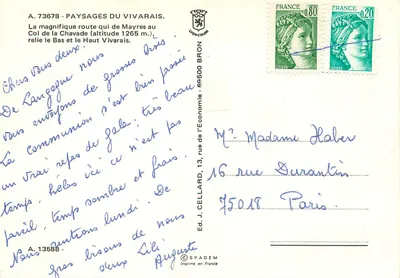 A. 73678 - PAYSAGES DU VIVARAIS.
La magnifique route qui de Mayres au
Col de la Chavade (altitude 1265 m.),
relie le Bas et le Haut Vivarais.
Chers vous deux.
De Langogne nous
vous envoyons de grosses bises.
La communion s'est bien passée
un vrai repas de gala; très beau
temps, hélas ici ce n'est pas
pareil, temps sombre et frais.
Nous rentrons lundi. De
gros bisous de nous
deux Lili
Auguste
A. 13588
Ed. J. CELLARD, 13, rue de l'Economie - 69500 BRON
© SPADEM
Imprimé en France
FRANCE
0,80
FRANCE
1,20
Mr Madame Haber
16 rue Durantin
75018 Paris.